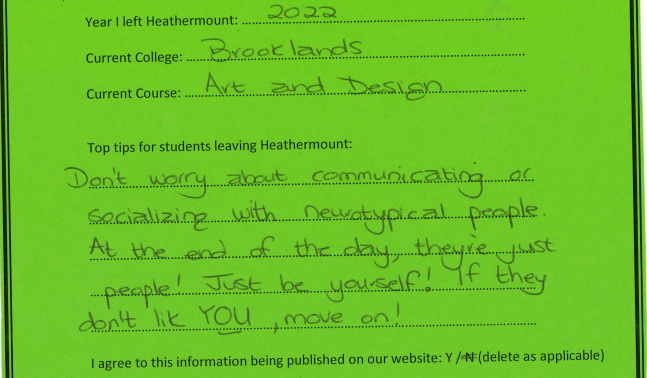 Year I left Heathermount: 2022
Current College: Brooklands
Current Course: Art and Design
Top tips for students leaving Heathermount:
Don't worry about communicating or
socializing with neurotypical people.
At the end of the day, they're just
people! Just be yourself! If they
don't lik YOU, move on!
I agree to this information being published on our website: Y / N (delete as applicable)